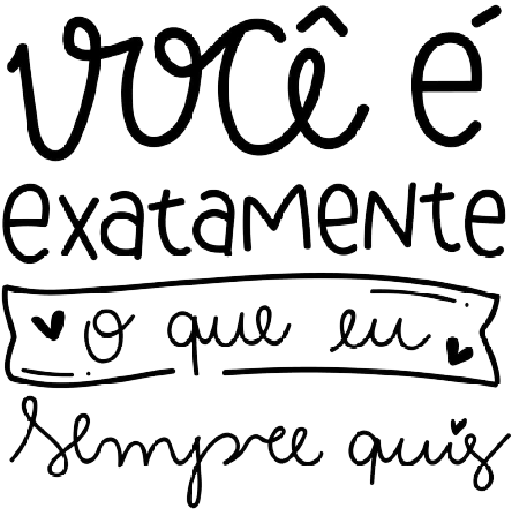 você é
exatamente
o que eu
sempre quis